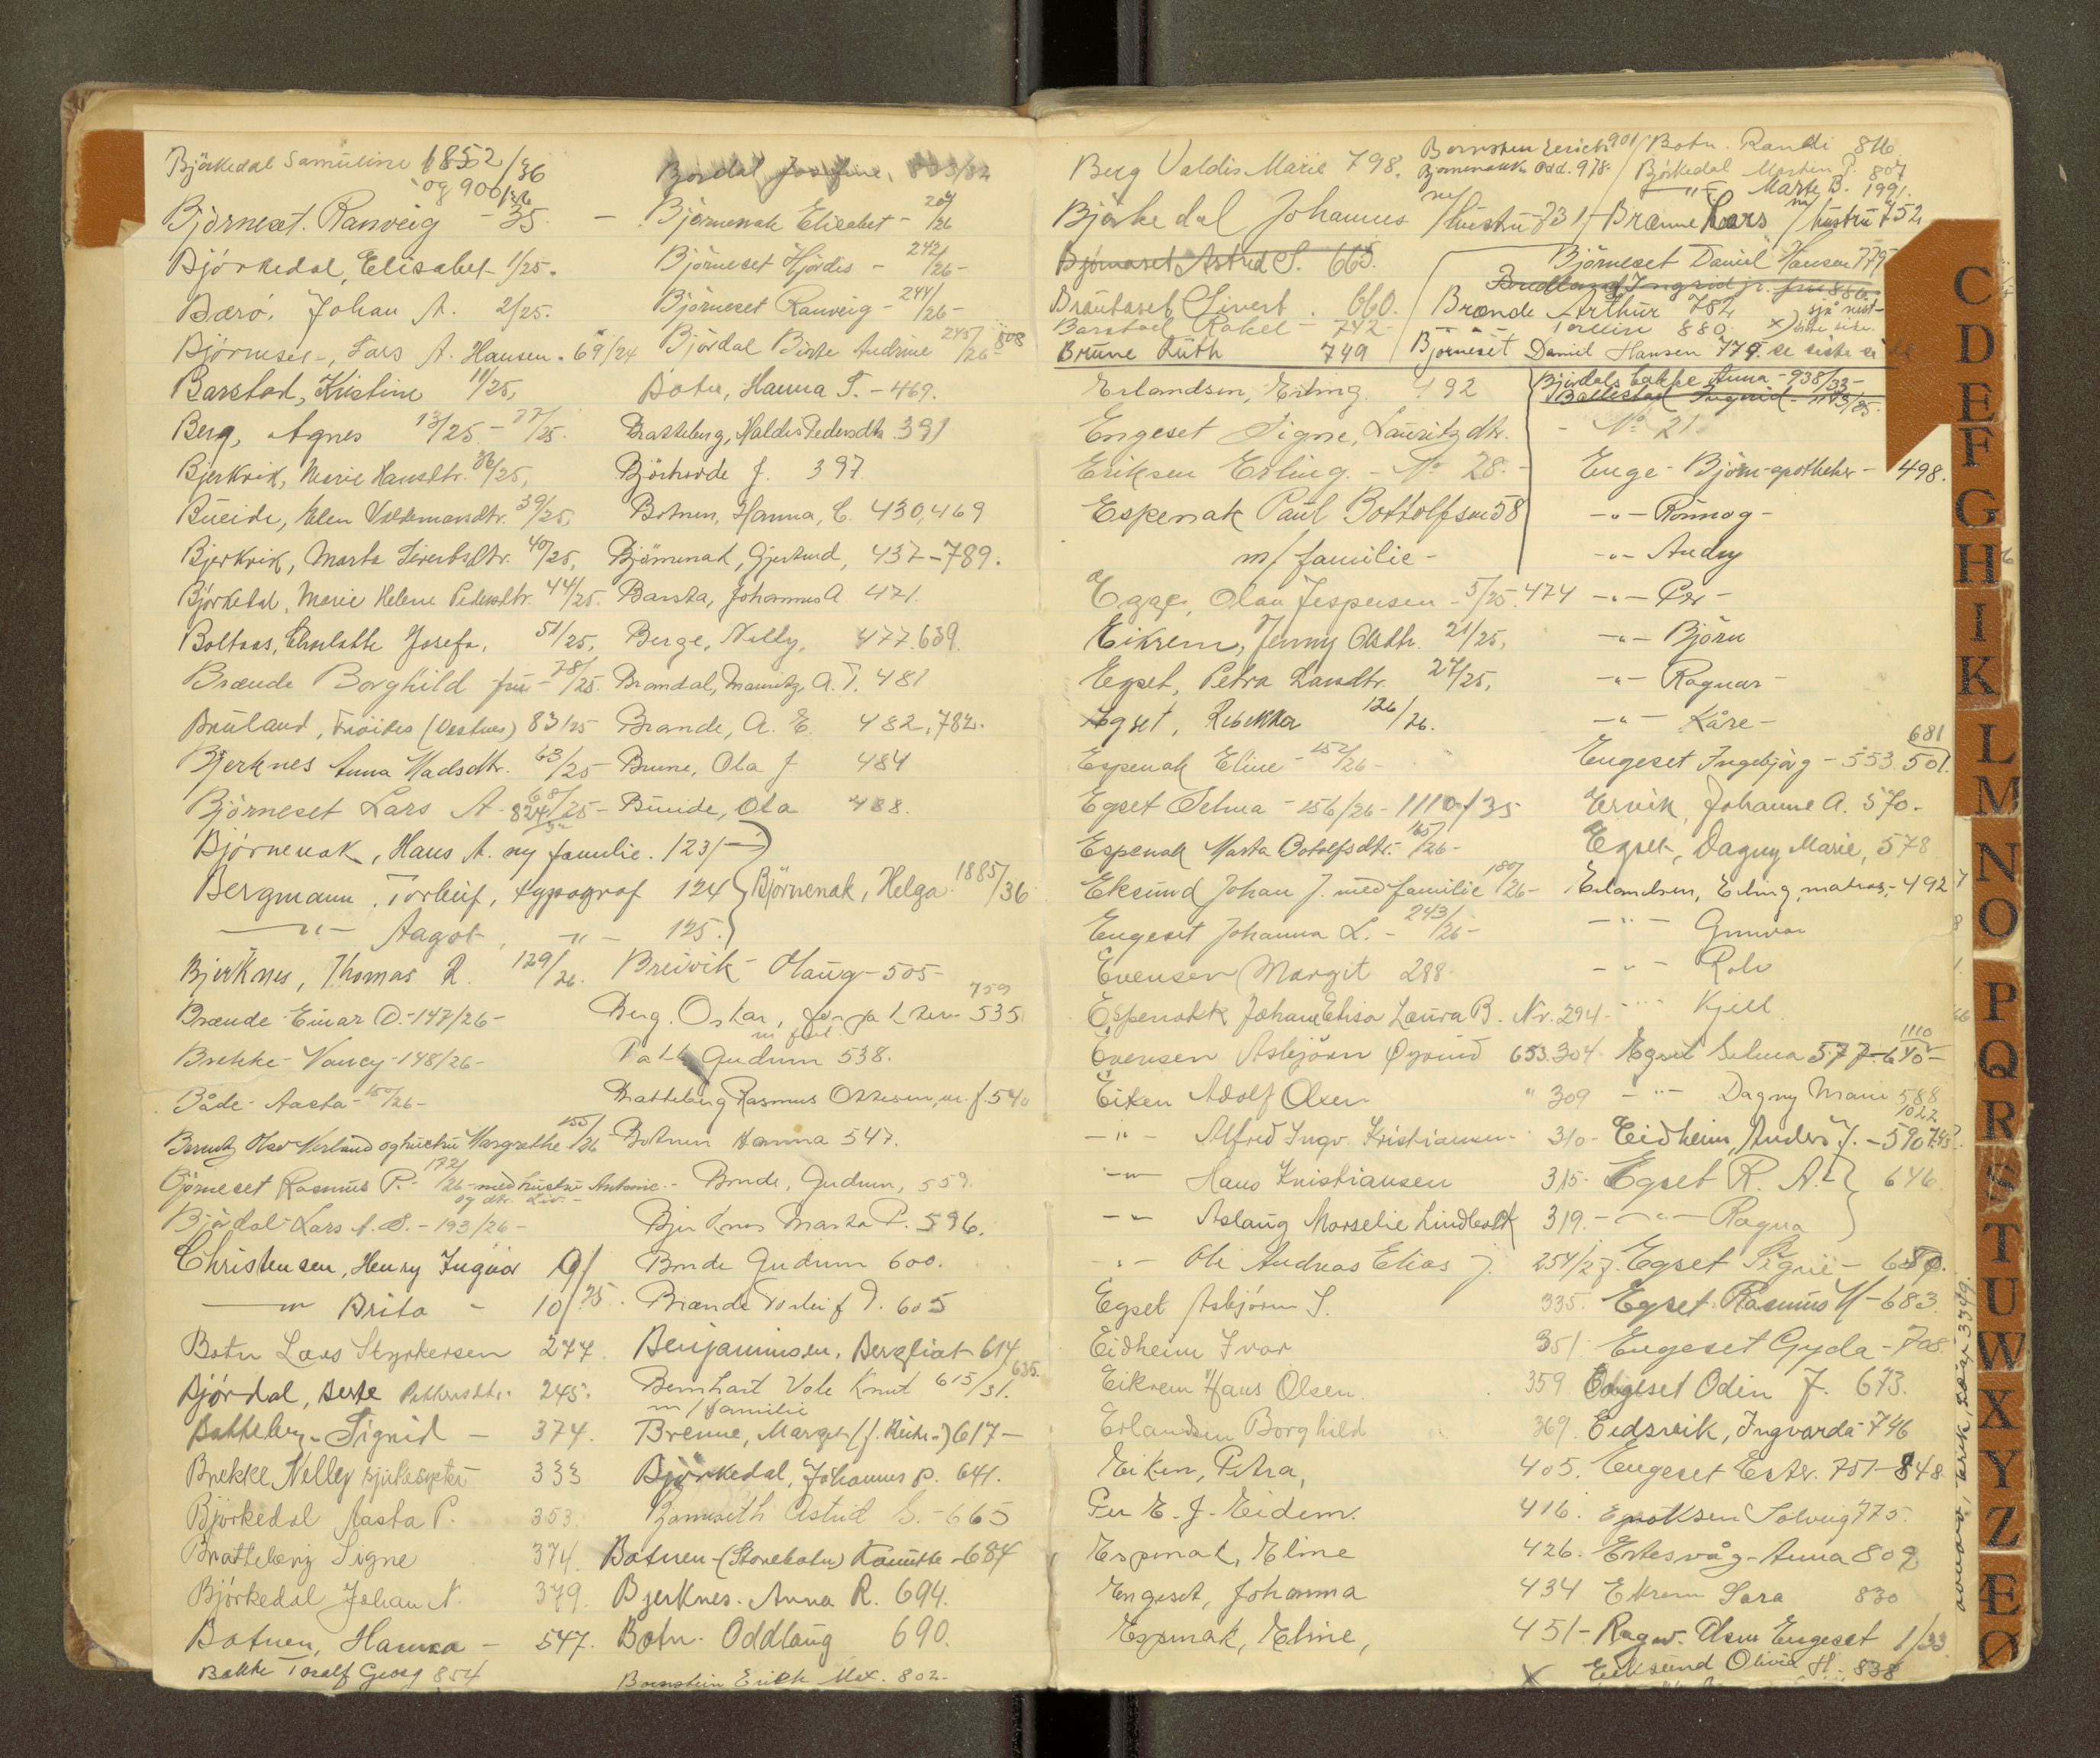 Björkedal Samuline 1852/36
og 900/36
Bjørneset. Ranveig - 35. -
Bjørkedal, Elisabet 1/25.
Bærö, Johan A. 2/25.
Bjørneset, Lars A. Hansen. 69/24
Barstad, Kristine 11/25,
Berg, Agnes 13/25. - 77/25.
Bjerkvik, Marie Hansdtr. 36/25,
Bueide, Elen Valdemarsdtr. 39/25,
Bjerkvik, Marta Sivertsdtr. 40/25,
Bjørkedal, Marie Helene Pedersdtr. 44/25.
Boltaas, Charlotte Josefa, 51/25,
Brænde Borghild fru - 78/25.
Bruland, (Vestnes) 83/25
Bjerknes Anna Madsdtr. 63/25
Björneset Lars A. 68/25 -
Bjørnenak, Hans A. ny familie. 123/
Bergmann, Torleif, typograf 124
—"— Aagot, —"— 125.
Bjerknes, Thomas R. 129/26.
Brænde Einar O. - 147/26 -
Brekke - Nancy - 148/26 -
Både - Aasta - 150/26 -
Olav Verland og hustru Margrethe 155/26
Björneset Rasmus P. - 172/26 - med hustru Antonie -
og dtr. Liv. -
Bjørdal - Lars A. S. - 193/26 -
Christensen, Henry Ingvar 9/
—"— Brita - 10/25.
Botn Lars Styrkersen 277.
Bjørdal, Berte Pettersdtr. 245.
Bratteberg - Sigrid - 374.
Brekke Nelly sjukesyster 333
Björkedal Aasta P. 353.
Bratteberg Signe 374.
Björkedal Johan N. 379.
Botnen, Hanna - 547.
Bakke Toralf Georg 854
Bjørdal Josefine, 853/32
Björnenak Elisabet - 204/26
Björneset Hjördis - 242/26 -
Björneset Ranveig - 244/26 -
Björdal Birte Andrine 245/26 808
Botn, Hanna T. - 469.
Bratteberg, Valdis Pedersdtr. 391
J. 397
Botnen, Hanna, C. 430, 469
Björnenak, Gjertrud, 437 - 789.
Barsta, Johannes A. 471.
Berge, Nelly, 477. 639.
Brandal, Mauritz, A. T. 481
Brande, A. E. 482, 782.
Brune, Ola J 484
Bueide, Ola 488.
Björnenak, Helga 1885/36
Breivik - Olaug - 505 -
Berg. Oskar, 759 535
m/fam.
Gudrun 538.
Bratteberg Rasmus Ottesen, m. f. 540
Botnen Hanna 547.
Bonde, Gudrun, 559.
Bjerknes Marta P. 596.
Bonde Gudrun 600.
Brænde Torleif P. 605
Benjaminsen, Bergliot 614
Bernhart Vale Knut 615/31. 635.
m/familie
Brenne, Margit (f. Reite) 617 -
Björkedal, Johannes P. 641.
Astrid S. - 665
Botnen - (Storebotn) Kamille - 684
Bjerknes. Anna R. 694.
Botn - Oddlaug 690.
Bornstein Erich Max. 802 -
Berg Valdis Marie 798.
Bornstein Erich 901/ Botn. Randi 816
Bjørnenak Odd. 978. Björkedal Martin P. 807
—"— Marte B. 1991.
Björkedal Johannes m/hustru 731 - Brænne Lars m/hustru 752
Bjørneset Astrid S. 665. Björneset Daniel Hansen 779
Bredland Ingrid
Brautaset Sivert. 660. Brande Arthur 782 x) sjå neste
Barstad Rakel - 742 - Torleiv 880. siste side.
Brune Ruth 749 Bjørneset Daniel Hansen 779. se siste side
Erlandsen, Erling. 492
Engeset Signe, Lauritzdtr. - No 21.
Eriksen Erling. - No 28. -
Espenak Paul Bottolfsen 58
m/familie -
Egge, Olav Jespersen - 5/25. 474
Eikrem, Jenny Olsdtr. 21/25,
Egset, Petra Larsdtr. 27/25,
Egset, Rebekka 126/26.
Espenak Eline - 152/26 -
Egset Selma - 156/26 - 1110/35
Espenak Marta Botolfsdtr. - 165/26 -
Eksund Johan J. med familie 180/26 -
Engeset Johanna L. - 243/26 -
Evensen Margit 288
Espenakk Johan Elisa Laura B. Nr. 294 -
Evensen Asbjörn Øyvind 653. 304.
Eiken Adolf Olsen " 309
—"— Alfred Ingv. Kristiansen 310 -
—"— Hans Kristiansen 315 -
—"— Aslaug Marselie Lindbakk 319. -
—"— Ole Andreas Elias J. 254/27.
Egset Asbjörn S. 335.
Eidheim Ivar 351
Eikrem Hans Olsen 359
Erlandsen Borghild 369.
Eiken, Petra, 405.
Per E. J. Eidem. 416.
Espenak, Eline 426.
Engeset, Johanna 434
Espenak, Eline, 451 -
Bjørdalsbakke Anna - 938/33 -
Ballestad Ingrid - 1143/35.
Enge - Björn - apotheker - 498.
—"— Rönnog -
—"— Audny
—"— Per -
—"— Björn
—"— Ragnar -
—"— Kåre -
681
Engeset Ingebjørg - 553. 501.
Ervik, Johanne A. 570 -
Egset, Dagny Marie, 578
Erlandsen, Erling, matros, - 492
—"— Gunvor
—"— Rolv
—"— Kjell
1110
Egset Selma 577 - 640 -
—"— Dagny Marie 588
1022
Eidheim, Anders J. - 590 743.
Egset R. A. 646.
—"— Ragna
Egset Signe - 680.
Egset. Rasmus M - 683
Engeset Gyda - 708.
Engeset Odin J. 673.
Eidsvik, Ingvarda - 746
Engeset Ester. 757 - 848
Solveig 775.
Ertesvåg - Anna 809
Ekrem Sara 830
Ragnv. Olsen Engeset 1/33
x Eiksund Olivia H. - 838
C
D
E
F
G
H
I
K
L
M
N
O
P
Q
R
S
T
U
W
X
Y
Z
Æ
Ø